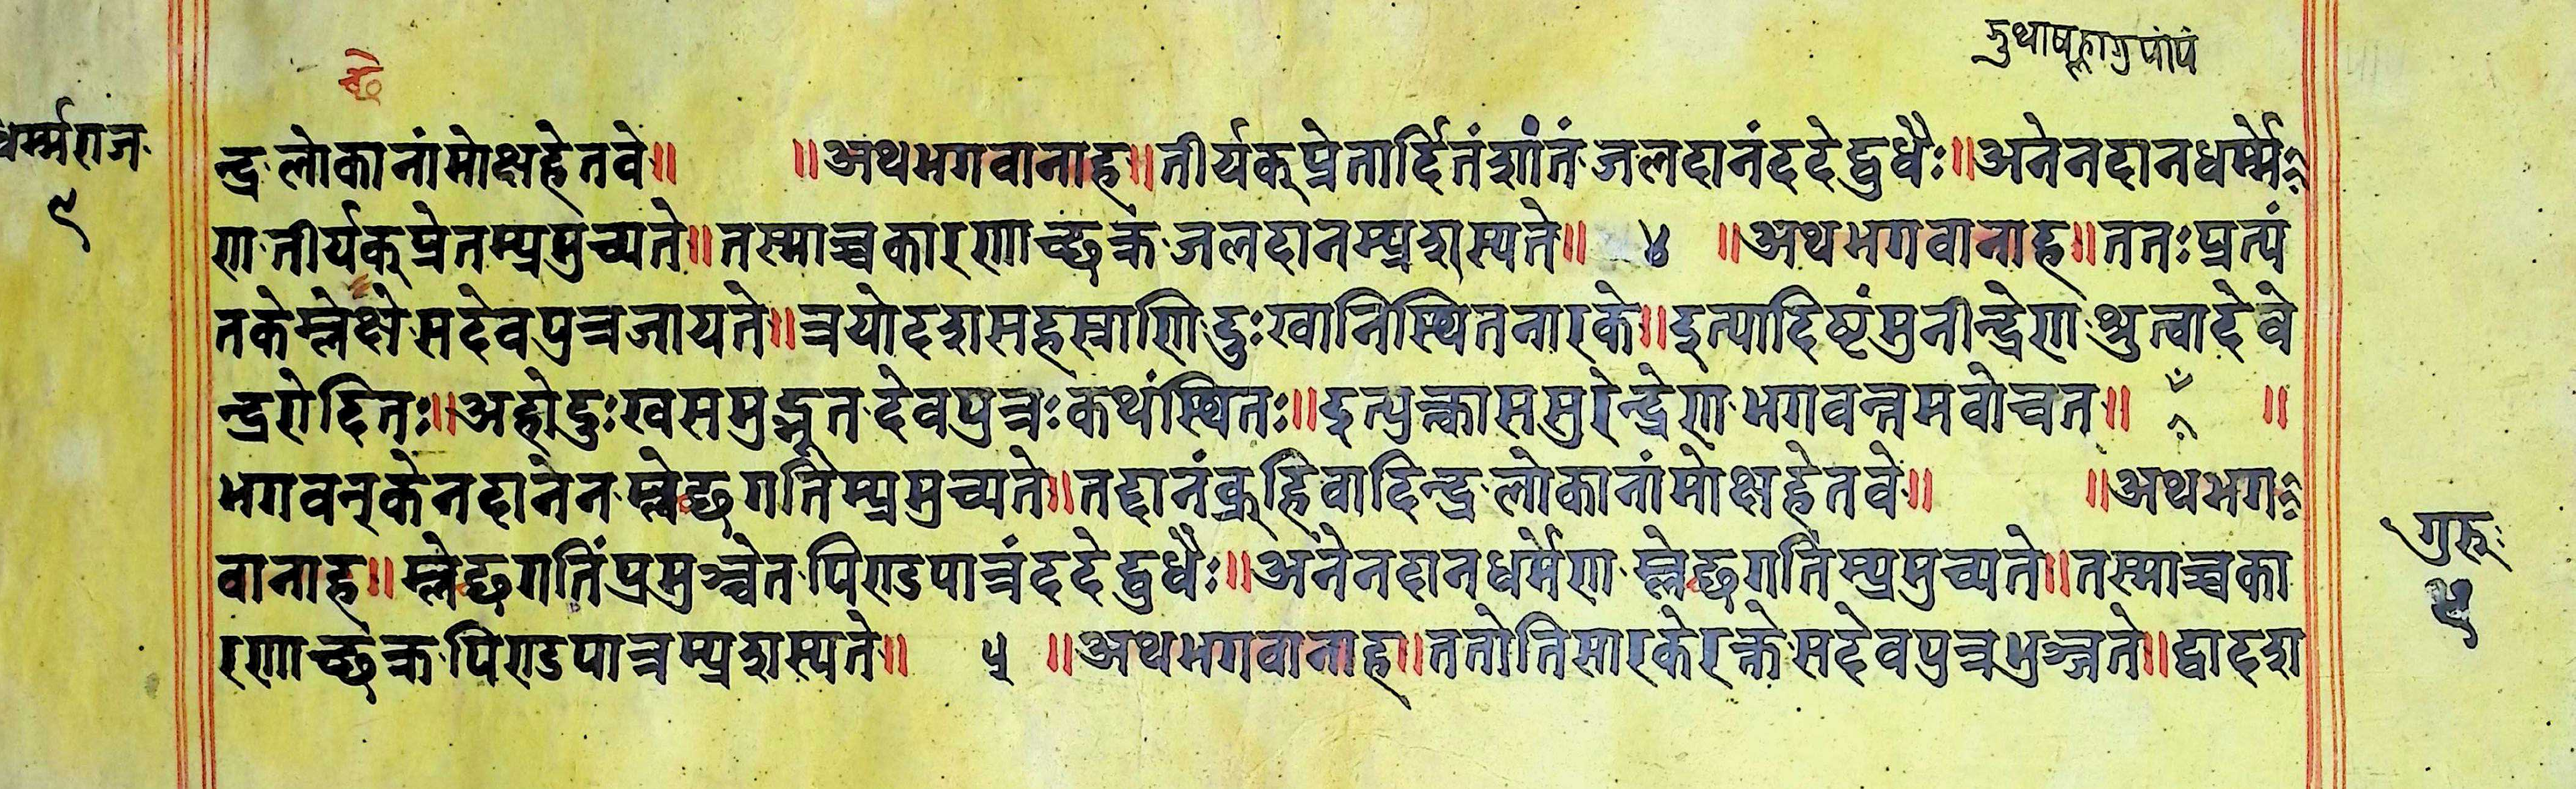 धर्म्मराज
९
न्द्र लोकानांमोक्षहेतवे॥ ॥अथभगवानाह॥तीर्यक्प्रेतार्द्दितंशांतं जलदानंददेद्बुधैः॥अनेनदानधर्म्मे
ण तीर्यक्प्रेतम्प्रमुच्यते॥तस्माच्चकारणाच्छक्र जलदानम्प्रशस्यते॥ ४ ॥अथभगवानाह॥ततःप्रत्यं
तकेम्लेक्षे सदेवपुत्रजायते॥त्रयोदशसहस्राणि दुःखानिस्थितनारके॥इत्यादिष्टंमुनीन्द्रेण श्रुत्वादेवे
न्द्ररोदितः॥अहोदुःखसमुद्भूत देवपुत्रःकथंस्थितः॥इत्युक्त्वासमुरेन्द्रेण भगवन्तमवोचत॥ ॥
भगवन्केनदानेन म्लेच्छगतिम्प्रमुच्यते॥तद्दानंब्रूहिवादिन्द्र लोकानांमोक्षहेतवे॥ ॥अथभग
वानाह॥म्लेच्छगतिंप्रमुञ्चेत पिण्डपात्रंददेद्बुधैः॥अनेनदानधर्मेण म्लेच्छगतिम्प्रमुच्यते॥तस्माच्चका
रणाच्छक्र पिण्डपात्रम्प्रशस्यते॥ ५ ॥अथभगवानाह॥ततोतिसारकेरक्ते सदेवपुत्रभुञ्जते॥द्वादश
गुरु
५